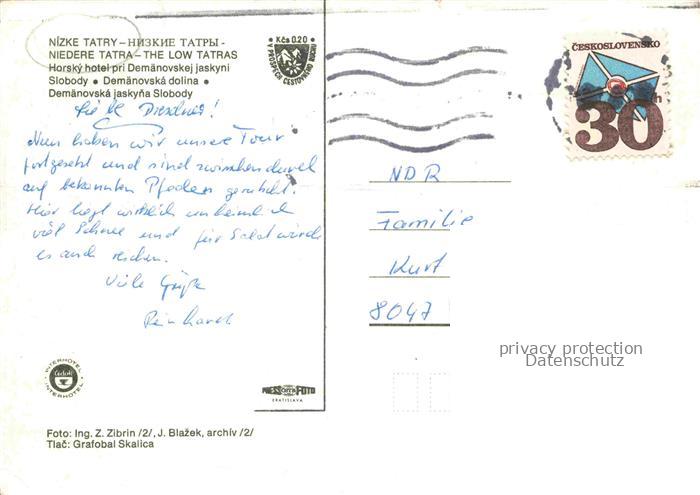 NÍZKE TATRY – НИЗКИЕ ТАТРЫ –
NIEDERE TATRA – THE LOW TATRAS
Horský hotel pri Demänovskej jaskyni
Slobody • Demänovská dolina •
Demänovská jaskyňa Slobody
Kčs 0.20
V PROSPECH CESTOVNÉHO RUCHU
ČESKOSLOVENSKO
30
h
Dresdner!
Nun haben wir unsere Tour
fortgesetzt und sind zwischendurch
auf bekannten Pfaden
Hier liegt wirklich unheimlich
viel Schnee und für Salat würde
es auch reichen.
Viele Grüße
Reinhardt
NDR
Familie
Kurt
8047
privacy protection
Datenschutz
INTERHOTEL
INTERHOTEL
PRESSFOTO
BRATISLAVA
Foto: Ing. Z. Zibrin /2/, J. Blažek, archív /2/
Tlač: Grafobal Skalica